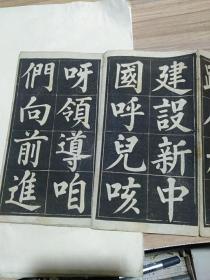 建設新中
國呼兒咳
呀領導咱
們向前進